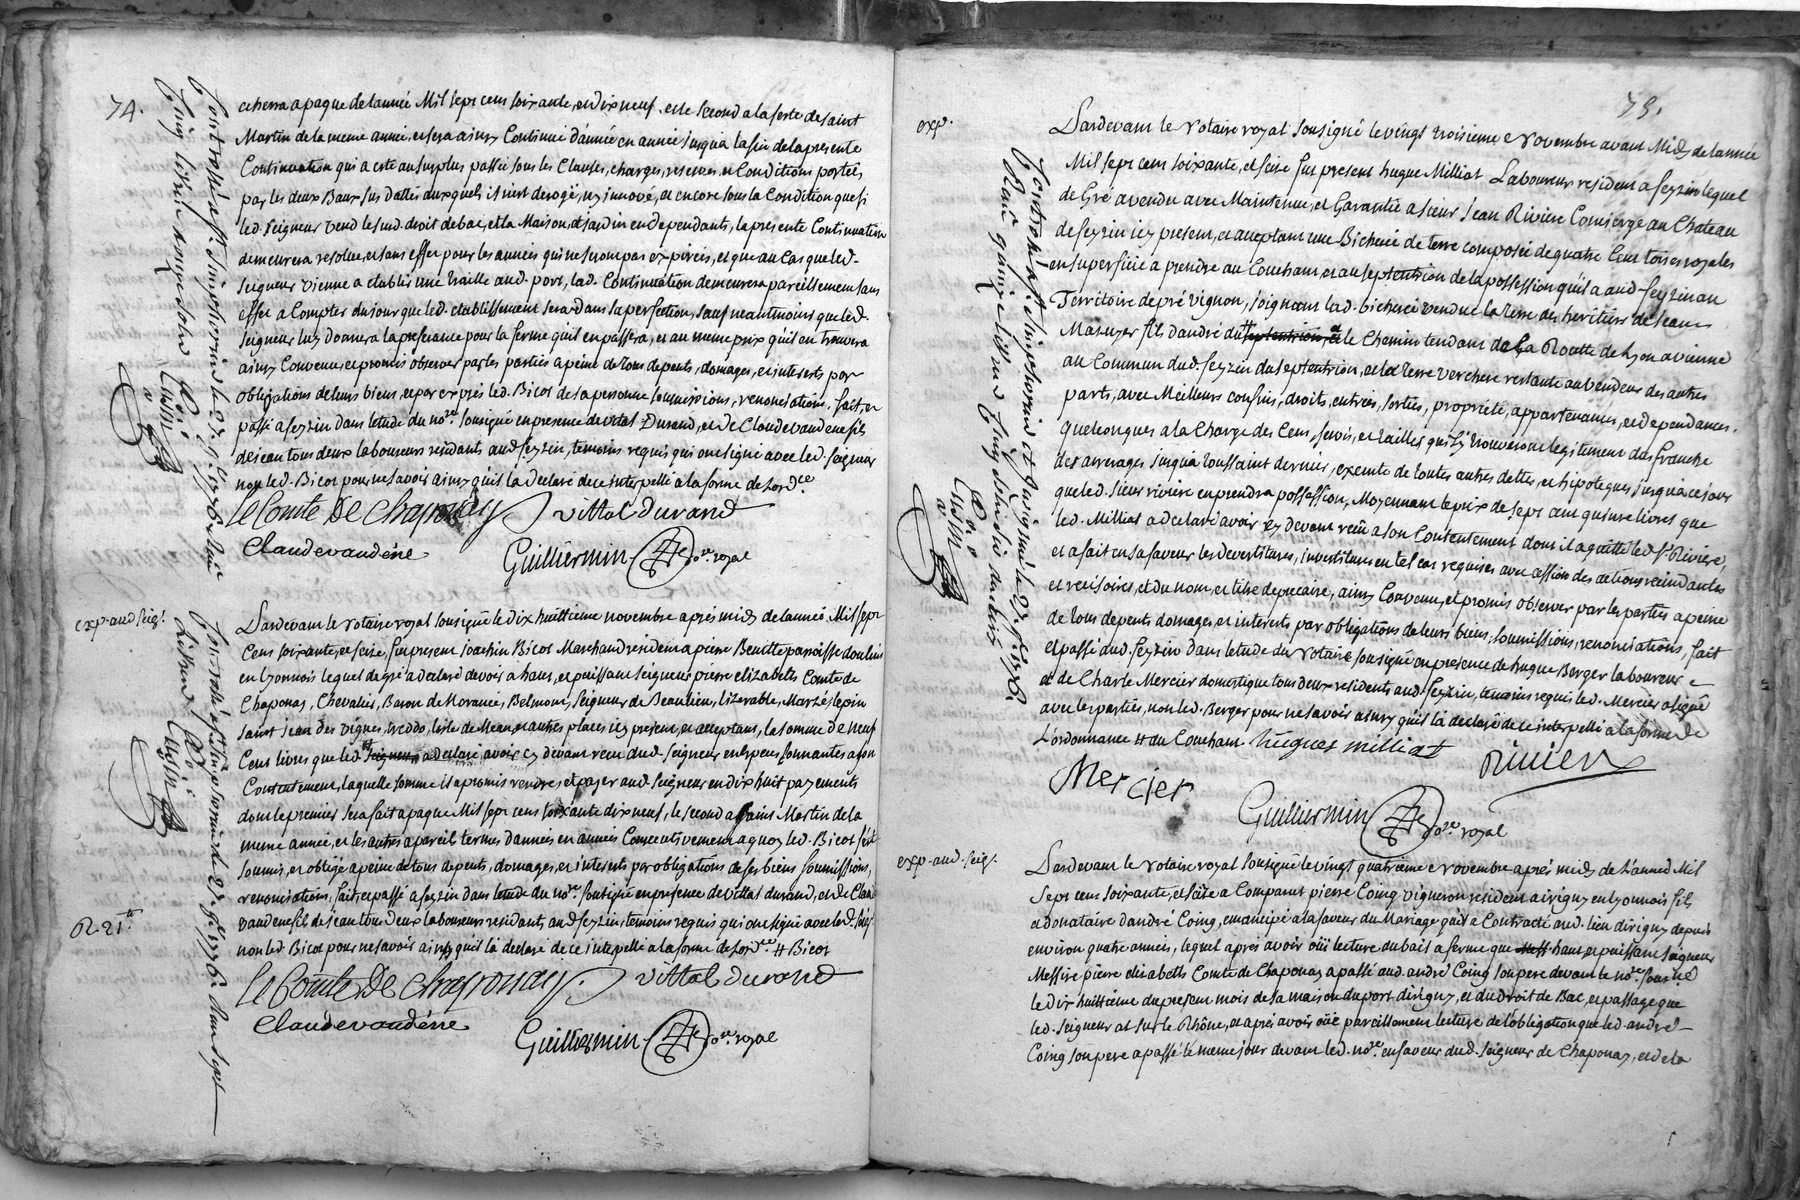 74.
echerra a paque de lannée Mil sept cens soixante, et dix neuf, et le second a la feste de saint
Martin de la meme année, et sera ainsy Continué d'année en année jusqu'a la fin de la presente
Continuation qui a eté au surplus passée sous les Clauses, charges, reserves, et Conditions portées
par les deux Baux sus dattés auxquels il n'est derogé, ny innové, et encore sous la Condition que si
led. Seigneur vend le sud. droit de bac, et la Maison, et jardin en dependants, la presente Continuation
demeurera resolue, et sans effet pour les années qui ne seront pas expirées, et que au Cas que led.
Seigneur vienne a etablir une traille aud. port, lad. Continuation demeurera pareillement sans
effet a Compter du jour que led. etablissement sera dans sa perfection, sauf neantmoins que led.
Seigneur luy donnera la preferance pour la ferme qu'il en passera, et au meme prix qu'il en trouvera
ainsy Convenu, et promis observer par les parties a peine de tous depents, domages, et interests par
obligations de leurs biens, et par exprés led. Bicot de sa personne soumissions, renonciations, fait, et
passé a feyzin dans letude du no.re soussigné en presence de vital Durand, et de Claude vaudene fils
de jean tous deux laboureurs residants aud. feyzin, temoins requis qui ont signé avec led. Seigneur
non led. Bicot pour ne savoir ainsy qu'il la Declaré de ce interpellé a la forme de Lord.ce
le Comte De Chaponay vittal durand
Claude vaudéne Guilliermin no.re royal
exp. aud. seig.r
Pardevant le Notaire royal soussigné le dix huittieme novembre aprés midy de lannée Mil sept
Cens soixante, et seize, fut present joachin Bicot Marchand resident a pierre Benitte paroisse doulins
en Lyonnois lequel de gré a declaré devoir a haut, et puissant seigneur pierre elizabeth Comte de
Chaponay, Chevalier, Baron de Morancé, Belmont, Seigneur de Beaulieu, lizerable, Marzé, lepin
saint jean des vignes, treddo, liste de Mean, et autres places, icy present, et acceptant, la somme de neuf
Cens livres que led. # a declaré avoir cy devant recu dud. Seigneur en Especes sonnantes a son
Contentement, laquelle somme il a promis rendre, et payer aud. Seigneur en dix huit payements
dont le premier sera fait a paque Mil sept cens soixante dix neuf, le second a saint Martin de la
meme année, et les autres a pareil termes d'années en années Consecutivement a quoy led. Bicot sest
soumis, et obligé a peine de tous depents, domages, et interests par obligations de ses biens soumissions,
renonciations, fait, et passé a feyzin dans letude du no.re soussigné en presence de vittal durand, et de Claude
vaudene fils de jean tous deux laboureurs residants aud. feyzin, temoins requis qui ont signé avec led. seig.r
non led. Bicot pour ne savoir ainsy qu'il la declaré de ce interpellé a la forme de lord.ce # Bicot
R. 21.
le Comte De Chaponay. vittal durand
Claude vaudéne Guilliermin no.re royal
75.
exp.
Pardevant le Notaire royal soussigné le vingt troisieme Novembre avant Midy de lannée
Mil sept cens soixante, et seize fut present hugue Milliat Laboureur resident a feyzin lequel
de Gré a vendu avec Maintenue, et Garantie a sieur jean Riviere Concierge au Chateau
de feyzin icy present, et acceptant une Bicherée de terre composée de quatre Cens toises royales
en superficie a prendre au Couchant, et au septentrion de la possession qu'il a aud. feyzin au
Territoire de pré vignon, joignant lad. bicherée vendue la terre des heritiers de jean
Mazuyer fils dandré du # le Chemin tendant de la Routte de Lyon a vienne
au Commun dud. feyzin du septentrion, et la terre verchere restante au vendeur des autres
parts, avec Meilleurs confins, droits, entrées, sorties, propriété, appartenances, et dependances
quelconques a la Charge des Cens, servis, et tailles qui s'y trouveront legitimement dus franche
des arrerages jusqua toussaint dernier, exemte de toutes autres dettes, et hipoteques jusqua ce jour
que led. sieur riviere en prendra possession, Moyennant le prix de sept cens quinze livres que
led. Milliat a declaré avoir cy devant recu a son Contentement dont il a quitté led. s.r Riviere,
et a fait en sa faveur les devestitures, investitures en tel cas requises avec cession des actions rescindantes
et rescisoires, et du nom, et titre de precaire, ainsy Convenu, et promis observer par les parties a peine
de tous depents domages, et interests par obligations de leurs biens, soumissions, renonciations, fait
et passé aud. feyzin dans letude du Notaire soussigné en presence de hugue Berger laboureur
et de Charle Mercier domestique tous deux residents aud. feyzin, temoins requis led. Mercier a signé
avec les parties, non led. Berger pour ne savoir ainsy qu'il la declaré de ce interpellé a la forme de
L'ordonnance # du Couchant hugues milliat
Mercier Rivier
Guilliermin no.re royal
exp. aud. seig.r
Pardevant le Notaire royal soussigné le vingt quatrieme Novembre aprés midy de L'année Mil
Sept cens soixante, et seize a Comparut pierre Coing vigneron resident a irigny en lyonnois fils,
et donataire dandré Coing, emancipé a la faveur du Mariage qu'il a Contracté aud. lieu dirigny depuis
environ quatre années, lequel aprés avoir oüi lecture du bail a ferme que haut, et puissant seigneur
Messire pierre elizabeth Comte de Chaponay a passé aud. andré Coing son pere devant le no.re souss.né
le dix huittieme du present mois de sa maison du port dirigny, et du droit de Bac, et passage que
led. Seigneur at sur le Rhône, et aprés avoir oüi pareillement lecture de l'obligation que led. andré
Coing son pere a passé le meme jour devant led. no.re en faveur dud. Seigneur de Chaponay, et de la